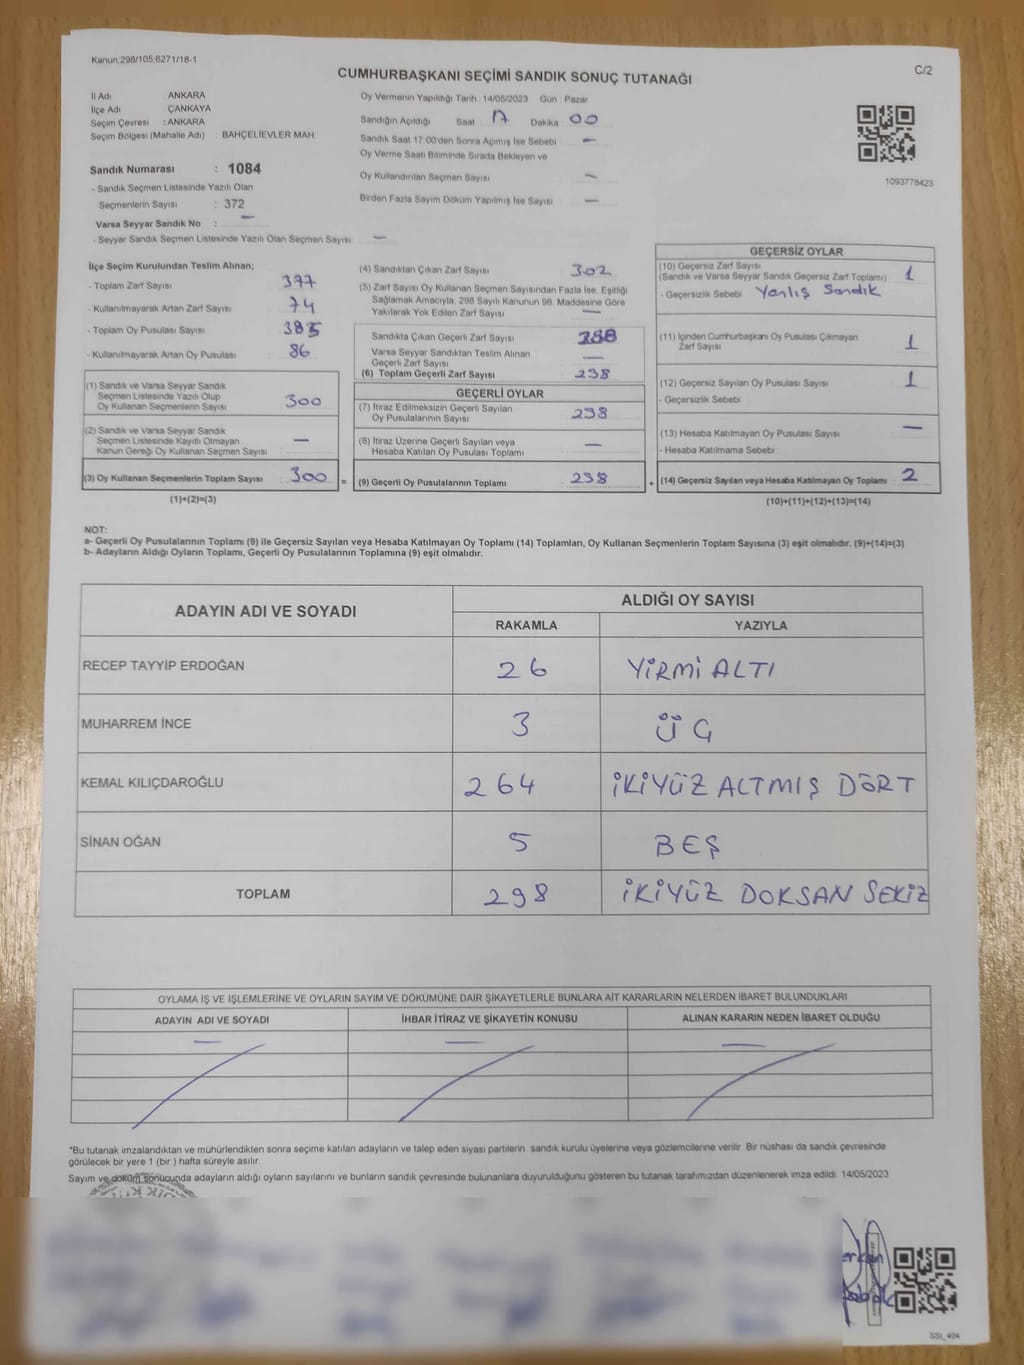 Kanun:298/105;6271/18-1
C/2
CUMHURBAŞKANI SEÇİMİ SANDIK SONUÇ TUTANAĞI
İl Adı ANKARA
İlçe Adı ÇANKAYA
Seçim Çevresi : ANKARA
Seçim Bölgesi (Mahalle Adı) : BAHÇELİEVLER MAH.
Sandık Numarası : 1084
- Sandık Seçmen Listesinde Yazılı Olan
Seçmenlerin Sayısı : 372
Varsa Seyyar Sandık No : —
- Seyyar Sandık Seçmen Listesinde Yazılı Olan Seçmen Sayısı —
Oy Vermenin Yapıldığı Tarih : 14/05/2023 Gün : Pazar
Sandığın Açıldığı Saat 17 Dakika 00
Sandık Saat 17:00'den Sonra Açımış İse Sebebi —
Oy Verme Saati Bitiminde Sırada Bekleyen ve
Oy Kullandırılan Seçmen Sayısı —
Birden Fazla Sayım Döküm Yapılmış İse Sayısı —
1093778423
İlçe Seçim Kurulundan Teslim Alınan;
- Toplam Zarf Sayısı 377
- Kullanılmayarak Artan Zarf Sayısı 74
- Toplam Oy Pusulası Sayısı 385
- Kullanılmayarak Artan Oy Pusulası 86
(1) Sandık ve Varsa Seyyar Sandık
Seçmen Listesinde Yazılı Olup
Oy Kullanan Seçmenlerin Sayısı 300
(2) Sandık ve Varsa Seyyar Sandık
Seçmen Listesinde Kayıtlı Olmayan
Kanun Gereği Oy Kullanan Seçmen Sayısı —
(3) Oy Kullanan Seçmenlerin Toplam Sayısı 300 =
(1)+(2)=(3)
(4) Sandıktan Çıkan Zarf Sayısı 302
(5) Zarf Sayısı Oy Kullanan Seçmen Sayısından Fazla İse, Eşitliği
Sağlamak Amacıyla, 298 Sayılı Kanunun 98. Maddesine Göre
Yakılarak Yok Edilen Zarf Sayısı —
Sandıkta Çıkan Geçerli Zarf Sayısı
Varsa Seyyar Sandıktan Teslim Alınan
Geçerli Zarf Sayısı —
(6) Toplam Geçerli Zarf Sayısı 298
GEÇERLİ OYLAR
(7) İtiraz Edilmeksizin Geçerli Sayılan
Oy Pusulalarının Sayısı 298
(8) İtiraz Üzerine Geçerli Sayılan veya
Hesaba Katılan Oy Pusulası Toplamı —
(9) Geçerli Oy Pusulalarının Toplamı 298 +
GEÇERSİZ OYLAR
(10) Geçersiz Zarf Sayısı
(Sandık ve Varsa Seyyar Sandık Geçersiz Zarf Toplamı) 1
- Geçersizlik Sebebi Yanlış Sandık
(11) İçinden Cumhurbaşkanı Oy Pusulası Çıkmayan
Zarf Sayısı 1
(12) Geçersiz Sayılan Oy Pusulası Sayısı 1
- Geçersizlik Sebebi
(13) Hesaba Katılmayan Oy Pusulası Sayısı —
- Hesaba Katılmama Sebebi
(14) Geçersiz Sayılan veya Hesaba Katılmayan Oy Toplamı 2
(10)+(11)+(12)+(13)=(14)
NOT:
a- Geçerli Oy Pusulalarının Toplamı (9) ile Geçersiz Sayılan veya Hesaba Katılmayan Oy Toplamı (14) Toplamları, Oy Kullanan Seçmenlerin Toplam Sayısına (3) eşit olmalıdır. (9)+(14)=(3)
b- Adayların Aldığı Oyların Toplamı, Geçerli Oy Pusulalarının Toplamına (9) eşit olmalıdır.
ADAYIN ADI VE SOYADI ALDIĞI OY SAYISI
RAKAMLA YAZIYLA
RECEP TAYYİP ERDOĞAN 26 YİRMİ ALTI
MUHARREM İNCE 3 ÜÇ
KEMAL KILIÇDAROĞLU 264 İKİYÜZ ALTMIŞ DÖRT
SİNAN OĞAN 5 BEŞ
TOPLAM 298 İKİYÜZ DOKSAN SEKİZ
OYLAMA İŞ VE İŞLEMLERİNE VE OYLARIN SAYIM VE DÖKÜMÜNE DAİR ŞİKAYETLERLE BUNLARA AİT KARARLARIN NELERDEN İBARET BULUNDUKLARI
ADAYIN ADI VE SOYADI İHBAR İTİRAZ VE ŞİKAYETİN KONUSU ALINAN KARARIN NEDEN İBARET OLDUĞU
— — —
*Bu tutanak imzalandıktan ve mühürlendikten sonra seçime katılan adayların ve talep eden siyasi partilerin sandık kurulu üyelerine veya gözlemcilerine verilir. Bir nüshası da sandık çevresinde
görülecek bir yere 1 (bir ) hafta süreyle asılır.
Sayım ve döküm sonucunda adayların aldığı oyların sayılarını ve bunların sandık çevresinde bulunanlara duyurulduğunu gösteren bu tutanak tarafımızdan düzenlenerek imza edildi. 14/05/2023
SSI_404